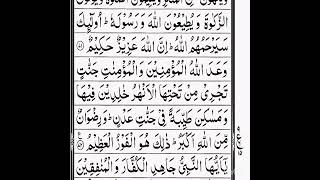 الزَّكٰوةَ وَيُطِيْعُوْنَ اللّٰهَ وَرَسُوْلَهٗ ؕ اُولٰٓئِكَ
سَيَرْحَمُهُمُ اللّٰهُ ؕ اِنَّ اللّٰهَ عَزِيْزٌ حَكِيْمٌ
وَعَدَ اللّٰهُ الْمُؤْمِنِيْنَ وَالْمُؤْمِنٰتِ جَنّٰتٍ
تَجْرِيْ مِنْ تَحْتِهَا الْاَنْهٰرُ خٰلِدِيْنَ فِيْهَا
وَمَسٰكِنَ طَيِّبَةً فِيْ جَنّٰتِ عَدْنٍ ؕ وَرِضْوَانٌ
مِّنَ اللّٰهِ اَكْبَرُ ؕ ذٰلِكَ هُوَ الْفَوْزُ الْعَظِيْمُ
يٰۤاَيُّهَا النَّبِيُّ جَاهِدِ الْكُفَّارَ وَالْمُنٰفِقِيْنَ